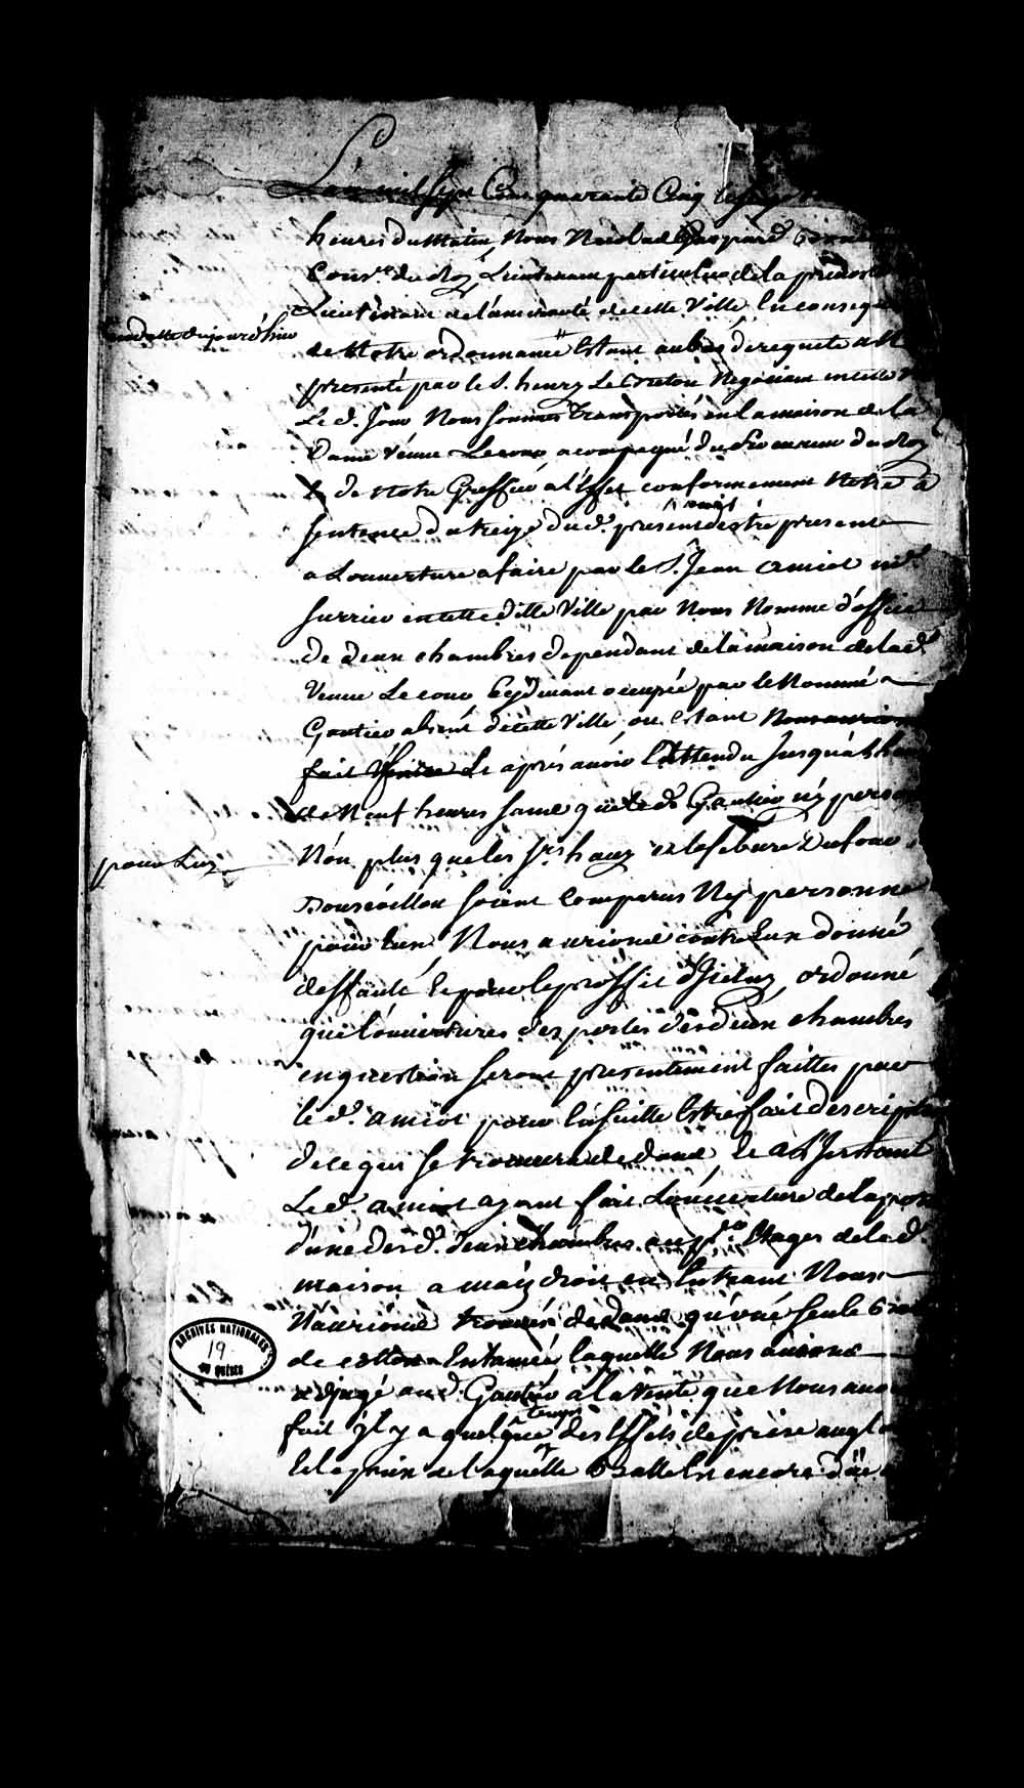 L'an mil sept Cent quarante Cinq le
heures du Matin, Nous Nicolas Gaspard
Cons.er du Roy, Lieutenant particulier de la prevosté
Lieutenant de l'amirauté de cette Ville, En conseq
en datte d'aujourd'huy
de Notre ordonnance Estant au bas de requete a N
presenté par le S. henry Le Breton Negociant en cette V
Le d. Jour Nous sommes transportés en la maison de la
Dame Veuve Lecour acompagné du Procureur du Roy
& de Notre Greffier a l'Effet conformement Notre
sentence du treize du d. present mois d'estre present
a L'ouverture a faire par le S. Jean amiot m.e
serrier en cette ditte Ville par Nous Nommé d'office
de deux chambres dependant de la maison de la d.
Veuve Lecour Cy devant occupée par le Nommé
Gautier absent de cette Ville, ou Estant Nous aurions
fait et après avoir Attendu Jusqu'a l'h
de Neuf heures sans que le d. Gautier n'y person
pour Luy
Non plus que les S.rs havy et lefebvre Dufour
soient Comparus Ny personne
pour Eux, Nous aurions contre Eux donné
deffaut, Et pour le proffit d'Iceluy, ordonné
que l'ouvertures des portes des deux chambres
en question seront presentement faittes par
le d. amiot pour En suitte Estre fait description
de ce qui se trouvera dedans, Et a L'Instant
Le d. amiot ayant fait L'ouverture de la porte
d'une des d. deux chambres au p.er Etages de la d.
maison a main droit en Entrant Nous
N'aurions trouvés dedans qu'une seule
de cotton Entamée, laquelle Nous avions
adjugé au d. Gautier a la Vente que Nous avon
fait il y a quelque temps des Effets de prise angl
Et le prix de laquelle Est encore
ARCHIVES NATIONALES
19
DU QUÉBEC